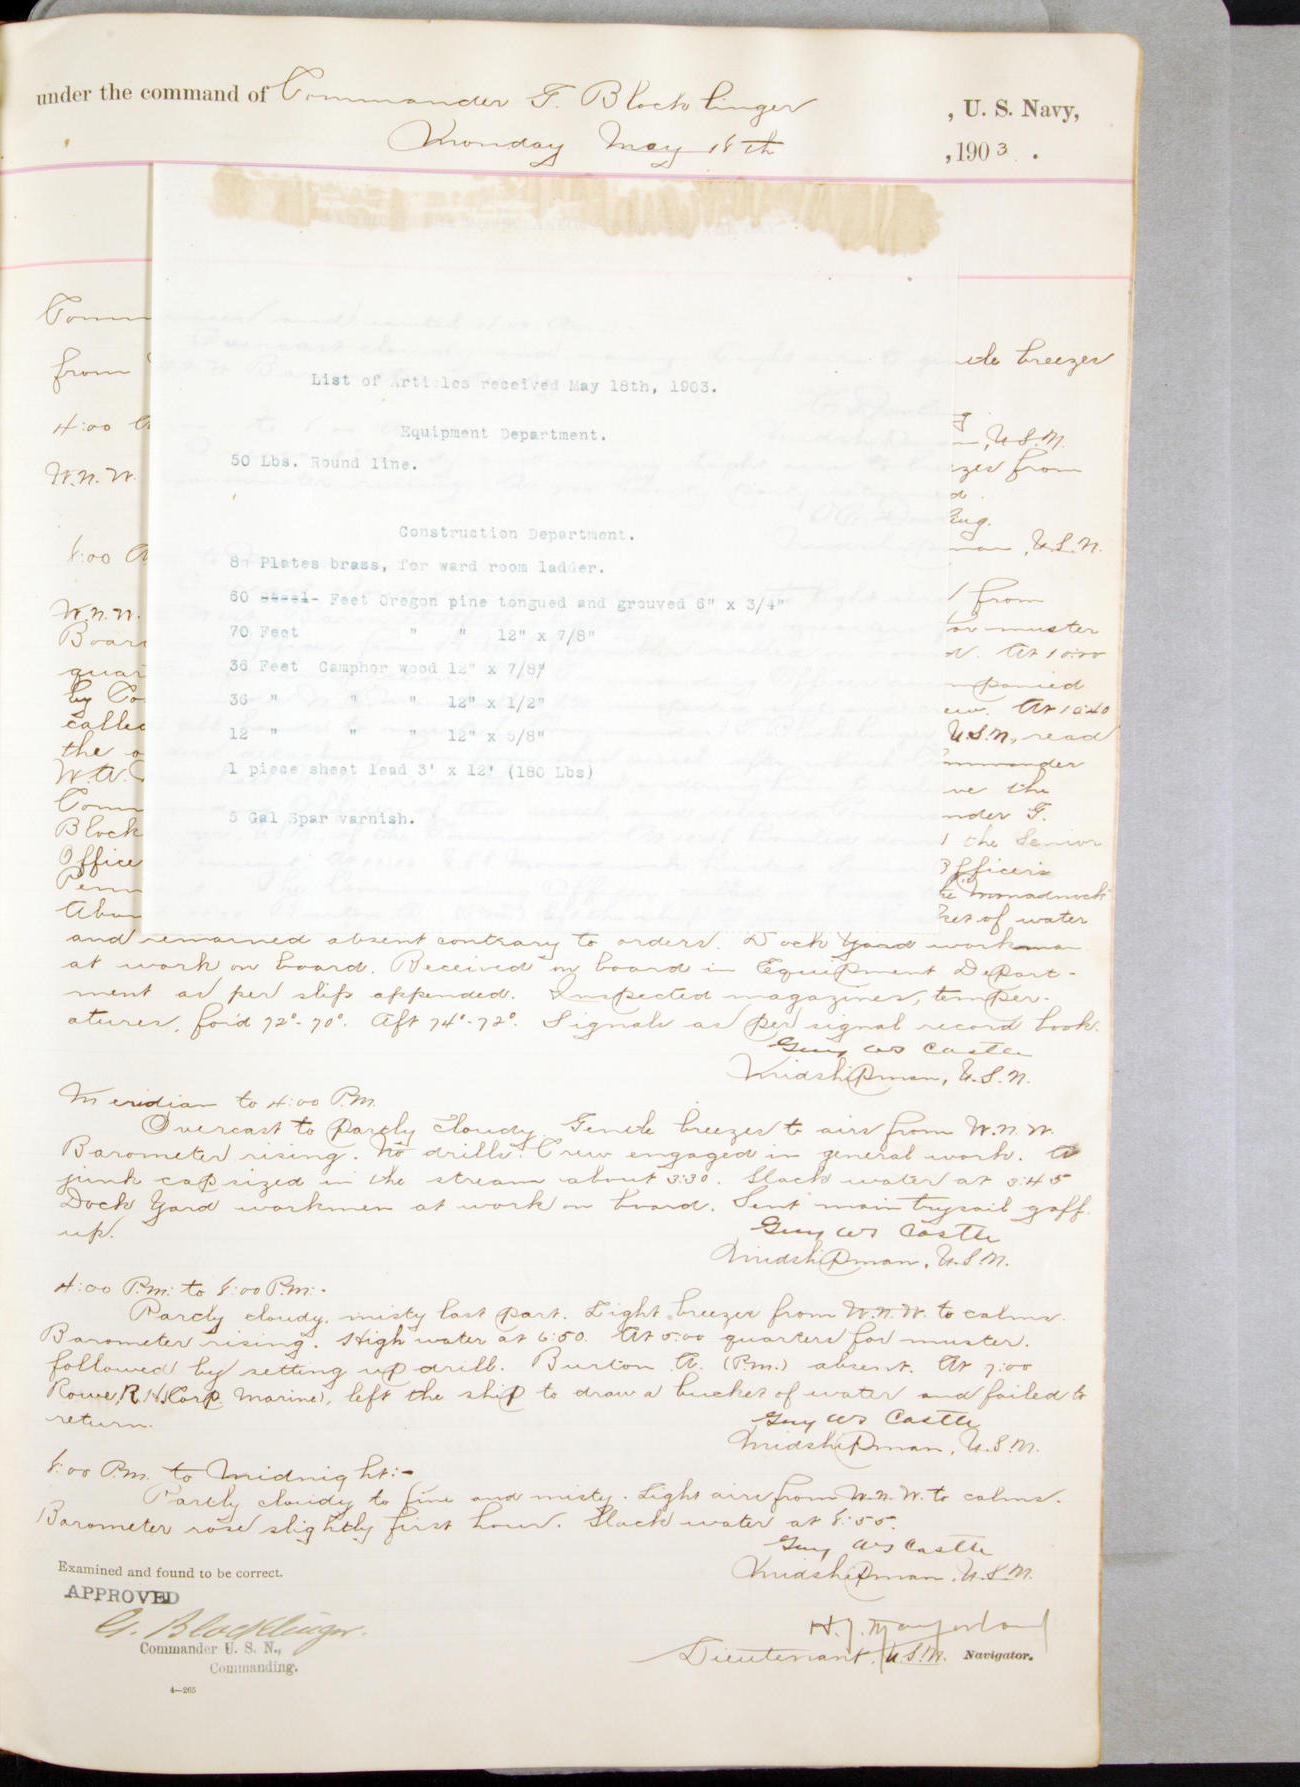 under the command of Commander G. Blocklinger , U. S. Navy,
Monday May 18th , 1903 .
Comm
from
ntle breezes
4:00 A
U.S.N.
W.N.W.
zes from
8:00 A
U.S.N.
W.N.W.
from
Board
for muster
quar
At 10:00
by Co
mpanied
called
ew. At 10:40
the o
U.S.N., read
W.A.
mmander
Comm
ve the
Block
nder G.
Office
the Senior
Penn
Officers
Abun
the Monadnock
ket of water
List of Articles received May 18th, 1903.
Equipment Department.
50 Lbs. Round line.
Construction Department.
8 Plates brass, for ward room ladder.
60 steel- Feet Oregon pine tongued and grouved 6" x 3/4"
70 Feet " " 12" x 7/8"
36 Feet Camphor wood 12" x 7/8"
36 " " " 12" x 1/2"
12 " " " 12" x 5/8"
1 piece sheet lead 3' x 12' (180 Lbs)
5 Gal Spar varnish.
and remained absent contrary to orders. Dock Yard workman
at work on board. Received on board in Equipment Depart-
ment as per slip appended. Inspected magazines, temper-
atures, for'd 72°-70°. Aft 74°-72°. Signals as per signal record book.
Guy W S Castle
Midshipman, U.S.N.
Meridian to 4:00 P.M.
Overcast to partly cloudy. Gentle breezes to airs from W.N.W.
Barometer rising. No drills. Crew engaged in general work. A
junk capsized in the stream about 3:30. Slack water at 3:45
Dock Yard workmen at work on board. Sent main trysail gaff
up.
Guy W S Castle
Midshipman, U.S.N.
4:00 P.M. to 8:00 P.M:-
Partly cloudy, misty last part. Light breezes from W.N.W. to calms.
Barometer rising. High water at 6:50. At 5:00 quarters for muster.
followed by setting up drill. Burton A. (P.m.) absent. At 7:00
Rowe, R.H. (Corp. Marine), left the ship to draw a bucket of water and failed to
return.
Guy W S Castle
Midshipman, U.S.N.
8:00 P.M. to Midnight:-
Partly cloudy to fine and misty. Light airs from W.N.W. to calms.
Barometer rose slightly first hour. Slack water at 8:55.
Guy W S Castle
Midshipman, U.S.N.
Examined and found to be correct.
APPROVED
G. Blocklinger.
Commander U. S. N.,
Commanding.
Lieutenant, U.S.N. Navigator.
4—265